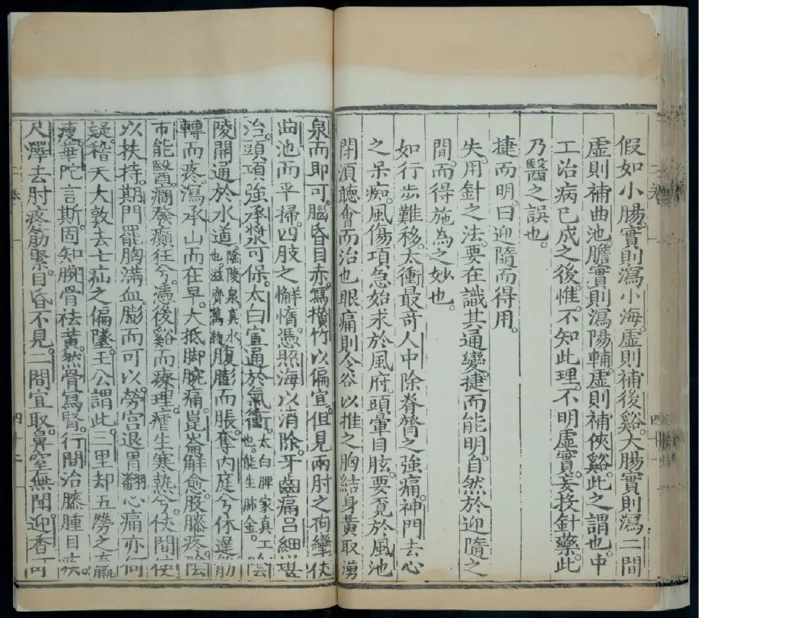 假如小腸實則瀉小海虛則補後谿大腸實則瀉二間
虛則補曲池膽實則瀉陽輔虛則補俠谿此之謂也中
工治病已成之後惟不知此理不明虛實妄投針藥此
乃醫之誤也
捷而明曰迎隨而得用
失用針之法要在識其通變捷而能明自然於迎隨之
間而得施為之妙也
如行步難移太衝最奇人中除脊膂之強痛神門去心
之呆痴風傷項急始求於風府頭暈目眩要覓於風池
閉須聽會而治也眼痛則合谷以推之胸結身黃取湧
泉而即可腦昏目赤瀉攅竹以偏宜但見兩肘之拘攣仗
曲池而平掃四肢之懈惰憑照海以消除牙齒痛呂細堪
治頭項強承漿可保太白宣通於氣衝太白脾家真土也能生肺金陰
陵開通於水道陰陵泉真水也滋濟萬物腹膨而脹奪內庭兮休遲筋
轉而疼瀉承山而在早大抵脚腕痛崑崙解愈股膝疼陰
市能醫癇發癲狂兮憑後谿而療理瘧生寒熱兮伏間使
以扶持期門罷胸滿血膨而可以勞宮退胃翻心痛亦何
疑稽夫大敦去七疝之偏墜王公謂此三里却五勞之羸
瘦華陀言斯固知腕骨祛黃然骨瀉腎行間治膝腫目疾
尺澤去肘疼筋緊目昏不見二間宜取鼻窒無聞迎香可
四十二